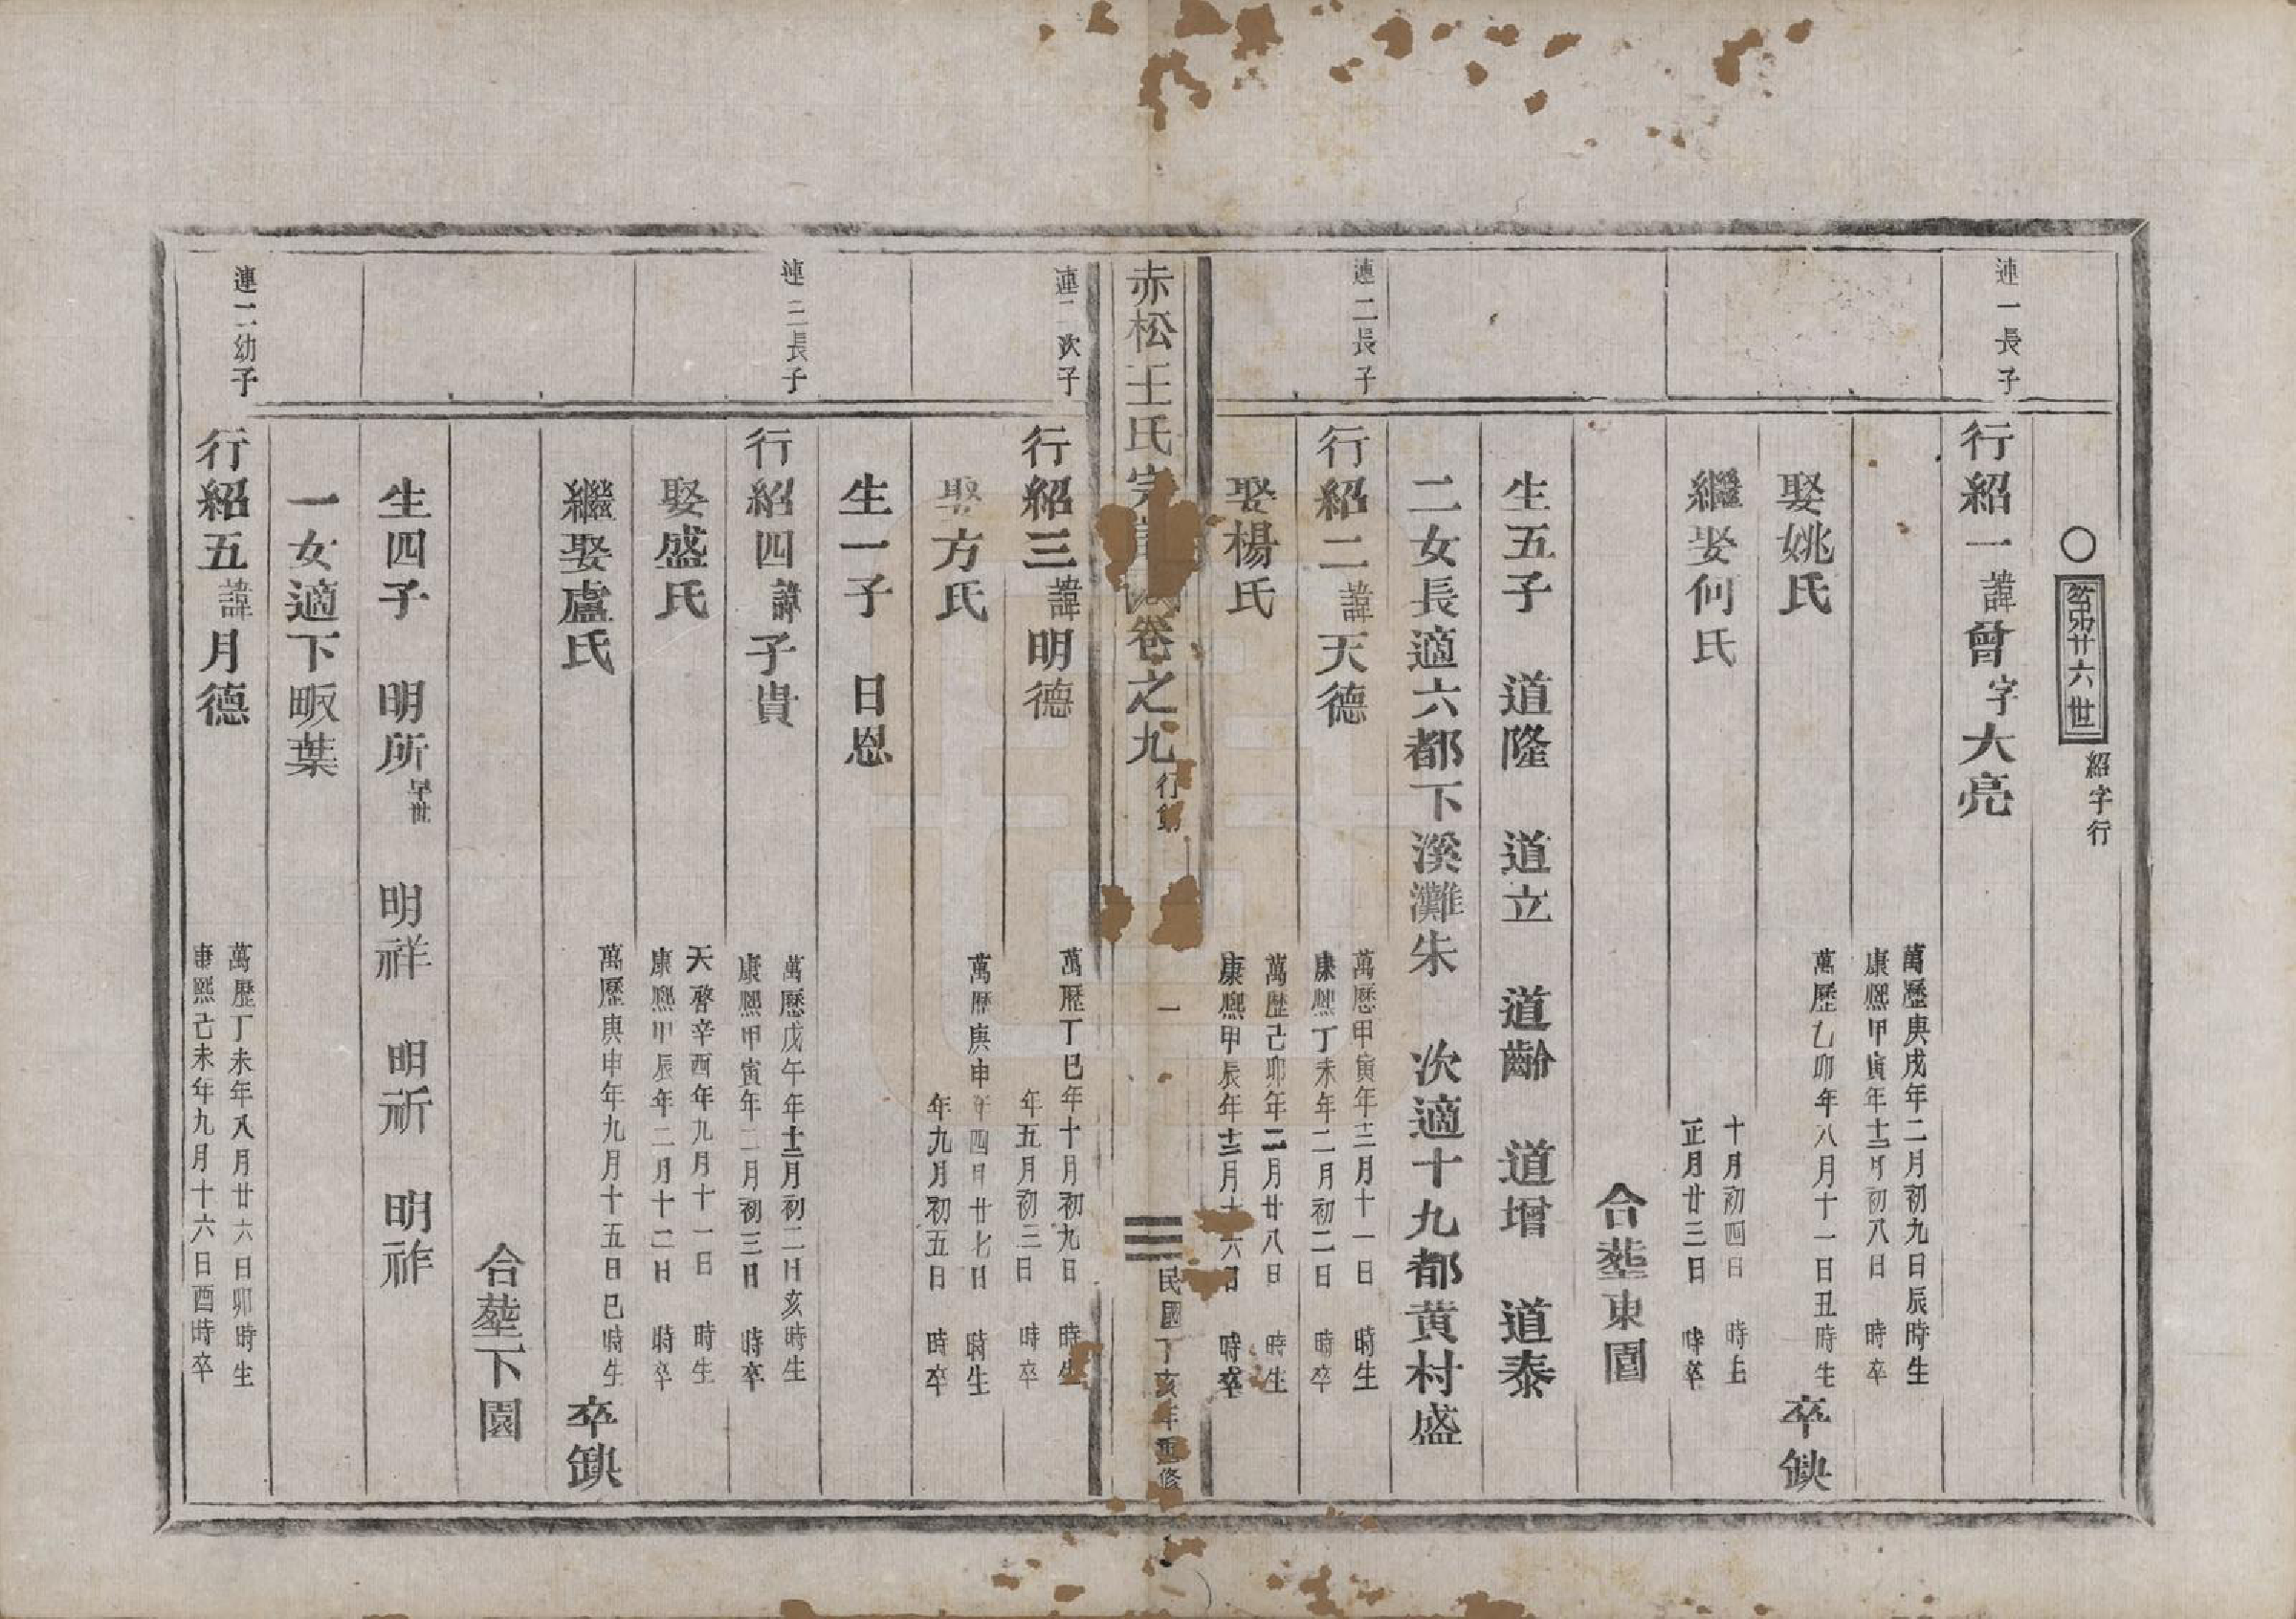 ○
廿六世
紹字行
連一長子
行紹一諱曾字大亮
萬歷庚戌年二月初九日辰時生
康熙甲寅年十二月初八日 時卒
娶姚氏
萬歷乙卯年八月十一日丑時生
卒缺
繼娶何氏
十月初四日 時生
正月廿三日 時卒
合塟東園
生五子 道隆 道立 道齡 道增 道泰
二女長適六都下溪灘朱 次適十九都黄村盛
連二長子
行紹二諱天德
萬歷甲寅年十二月十一日 時生
康熙丁未年二月初二日 時卒
娶楊氏
萬歷己卯年二月廿八日 時生
康熙甲辰年十二月十六日 時卒
赤松王氏宗譜 卷之九 行第 一 民國丁亥年重修
連二次子
行紹三諱明德
萬歷丁巳年十月初九日 時生
年五月初三日 時卒
娶方氏
萬歷庚申年四月廿七日 時生
年九月初五日 時卒
生一子 日恩
連三長子
行紹四諱子貴
萬歷戊午年十二月初二日亥時生
康熙甲寅年二月初三日 時卒
娶盛氏
天啓辛酉年九月十一日 時生
康熙甲辰年二月十二日 時卒
繼娶盧氏
萬歷庚申年九月十五日巳時生
卒缺
合塟下園
生四子 明所早世 明祥 明祈 明祚
一女適下畈葉
連二幼子
行紹五諱月德
萬歷丁未年八月廿六日卯時生
康熙己未年九月十六日酉時卒